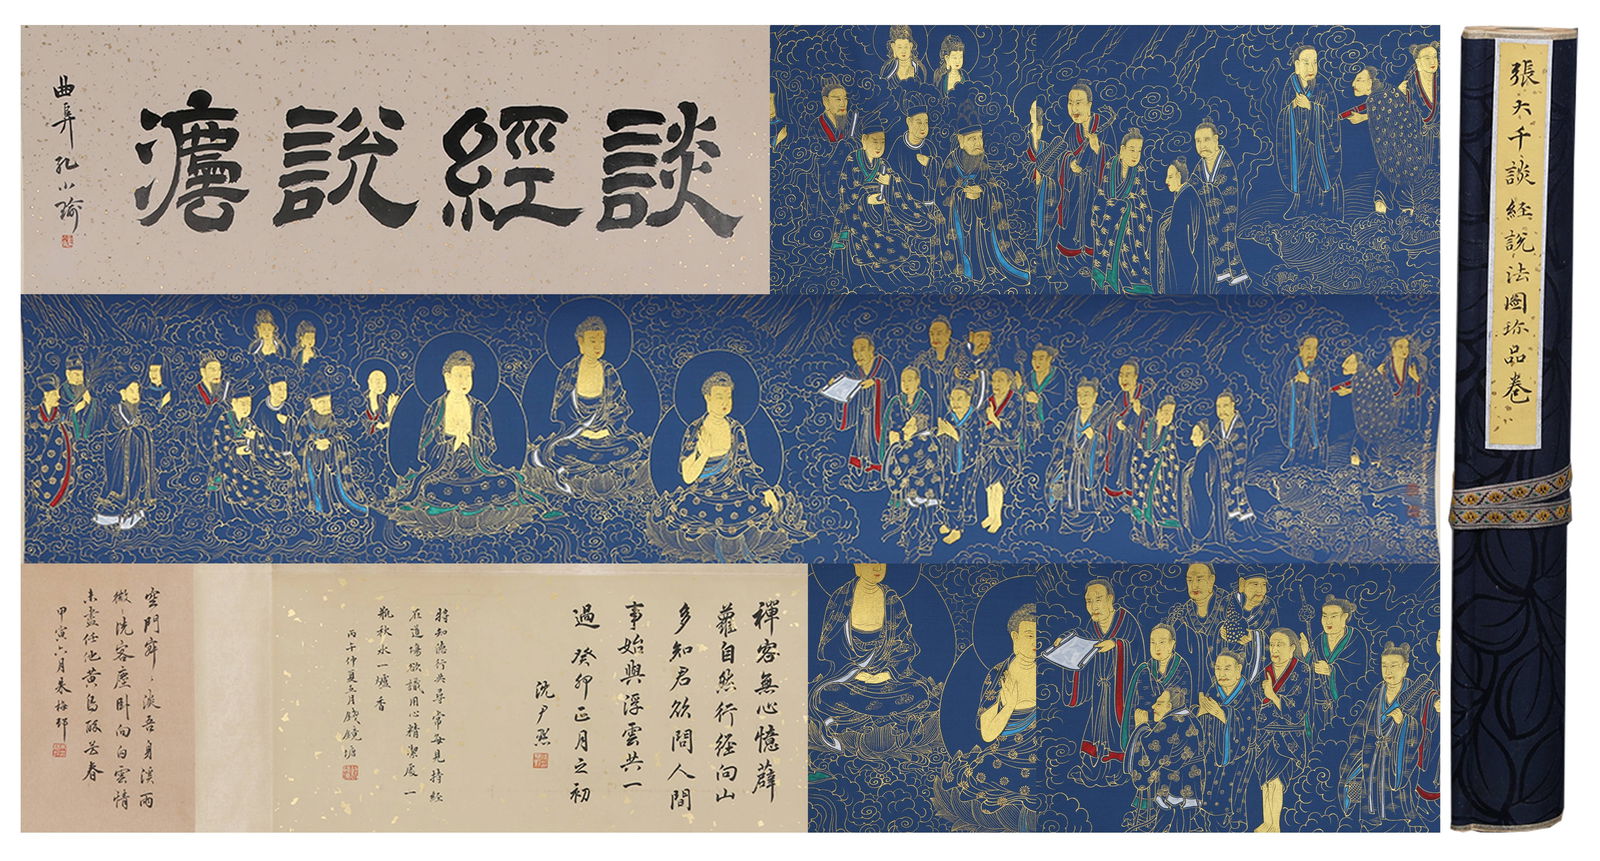 談經說灋
曲阜孔小瑜
張大千談経說法圖珎品卷
禪客無心憶薜
蘿自然行徑向山
多知君欲問人間
事始與浮雲共一
過 癸卯正月之初
沈尹默
將知德行異尋常每見持經
在道場欲識用心精潔處一
瓶秋水一爐香
丙子仲夏五月錢鏡塘
空門寂、淡吾身溪雨
微、洗客塵臥向白雲情
未盡任他黃鳥醉芳春
甲寅六月朱梅邨